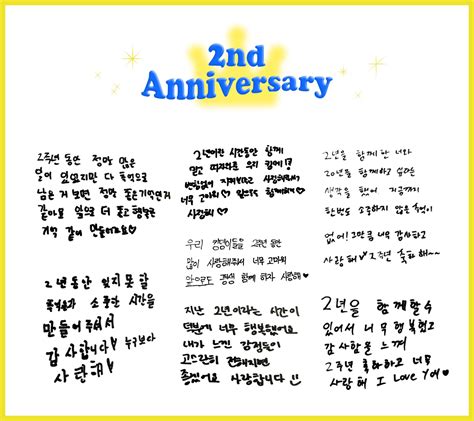 2nd
Anniversary
2주년 동안 정말 많은
일이 있었지만 다 추억으로
남은 거 보면 정말 좋은기억인거
같아요 앞으로 더 좋고 행복한
기억 같이 만들어봐요♡
2년이란 시간동안 함께
믿고 따라와준 우리
변함없이 지켜봐주고 사랑해줘서
너무 고마워 앞으로도 함께해
사랑해♡
2년을 함께 한 너와
20년을 함께하고 싶다는
생각을 했어 지금까지
한번도 소중하지 않은 순간이
없어! 그만큼 너무 감사하고
사랑해♡ 2주년 축하해~
우리 들을 2주년 동안
많이 사랑해줘서 너무 고마워
앞으로도 평생 함께 하자 사랑해♡
2년동안 잊지 못할
추억들과 소중한 시간을
만들어주셔서
감사합니다 누구보다
사랑해
지난 2년이라는 시간이
덕분에 너무 행복했어요
내가 느낀 감정들이
고스란히 전해지면
좋겠어요 사랑합니다
2년을 함께할수
있어서 너무 행복했고
감사함을 느껴
2주년 축하하고 너무
사랑해 I Love You ♥